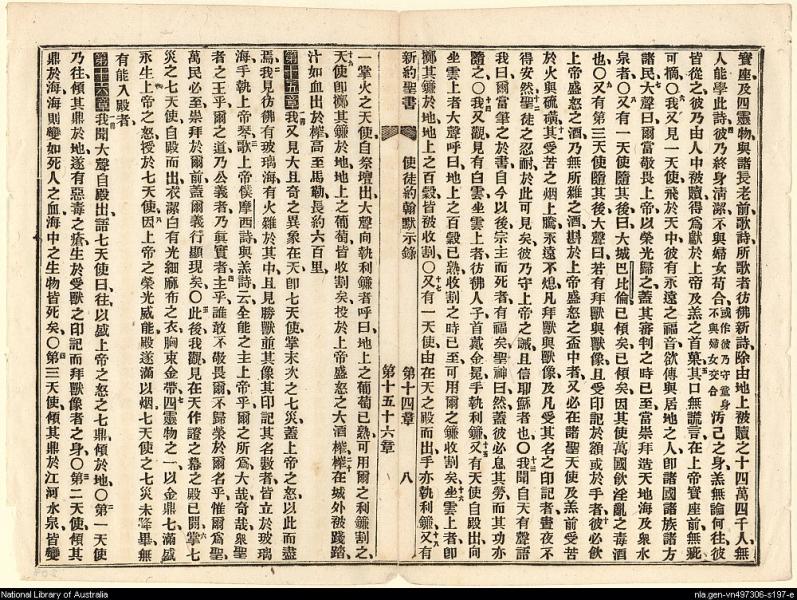 寶座及四靈物與諸長老前歌詩所歌者彷彿新詩除由地上被贖之十四萬四千人無
人能學此詩彼乃終身清潔不與婦女苟合或作彼乃守童身不與婦女交合污己之身羔無論何往彼
皆從之彼乃由人中被贖得爲獻於上帝及羔之首菓其口無謊言在上帝寶座前無疵
可摘〇我又見一天使飛於天中彼有永遠之福音欲傳與居地之人卽諸國諸族諸方
諸民大聲曰爾當敬畏上帝以榮光歸之蓋其審判之時已至當崇拜造天地海及衆水
泉者〇又有一天使隨其後曰大城巴比倫已傾矣已傾矣因其使萬國飮淫亂之毒酒
也〇又有第三天使隨其後大聲曰若有拜獸與獸像且受印記於額或於手者彼必飮
上帝盛怒之酒乃無所雜之酒斟於上帝盛怒之盃中者又必在諸聖天使及羔前受苦
於火與硫磺其受苦之烟上騰永遠不熄凡拜獸與獸像及凡受其名之印記者晝夜不
得安然聖徒之忍耐於此可見矣彼乃守上帝之誡且信耶穌者也〇我聞自天有聲語
我曰爾當筆之於書自今以後宗主而死者有福矣聖神曰然蓋彼必息其勞而其功亦
隨之〇我又觀見有白雲坐雲上者彷彿人子首戴金冕手執利鐮又有天使自殿出向
坐雲上者大聲呼曰地上之百穀已熟收割之時已至可用爾之鐮收割矣坐雲上者卽
擲其鐮於地地上之百穀皆被收割〇又有一天使由在天之殿而出手亦執利鐮又有
新約聖書 使徒約翰默示錄 第十四章 八
第十五十六章
一掌火之天使自祭壇出大聲向執利鐮者呼曰地上之葡萄已熟可用爾之利鐮割之
天使卽擲其鐮於地地上之葡萄皆收割矣投於上帝盛怒之大酒榨榨在城外被踐踏
汁如血出於榨高至馬勒長約六百里
第十五章我又見大且奇之異象在天卽七天使掌末次之七災蓋上帝之怒以此而盡
焉我見彷彿有玻璃海有火雜於其中且見勝獸並其像其印記其名數者皆立於玻璃
海手執上帝琴歌上帝僕摩西詩與羔詩云全能之主上帝乎爾之所爲大哉奇哉衆聖
者之王乎爾之道乃公義者乃眞實者主乎誰敢不敬畏爾不歸榮於爾名乎惟爾爲聖
萬民必至崇拜於爾前蓋爾義行顯現矣〇此後我觀見在天作證之幕之殿已開掌七
災之七天使自殿而出衣潔白有光細麻布之衣胸束金帶四靈物之一以金鼎七滿盛
永生上帝之怒授於七天使因上帝之榮光威能殿遂滿以烟七天使之七災未降畢無
有能入殿者
第十六章我聞大聲自殿出語七天使曰往以盛上帝之怒之七鼎傾於地〇第一天使
乃往傾其鼎於地遂有惡毒之瘡生於受獸之印記而拜獸像者之身〇第二天使傾其
鼎於海海則變如死人之血海中之生物皆死矣〇第三天使傾其鼎於江河水泉皆變
National Library of Australia
nla.gen-vn497306-s197-e